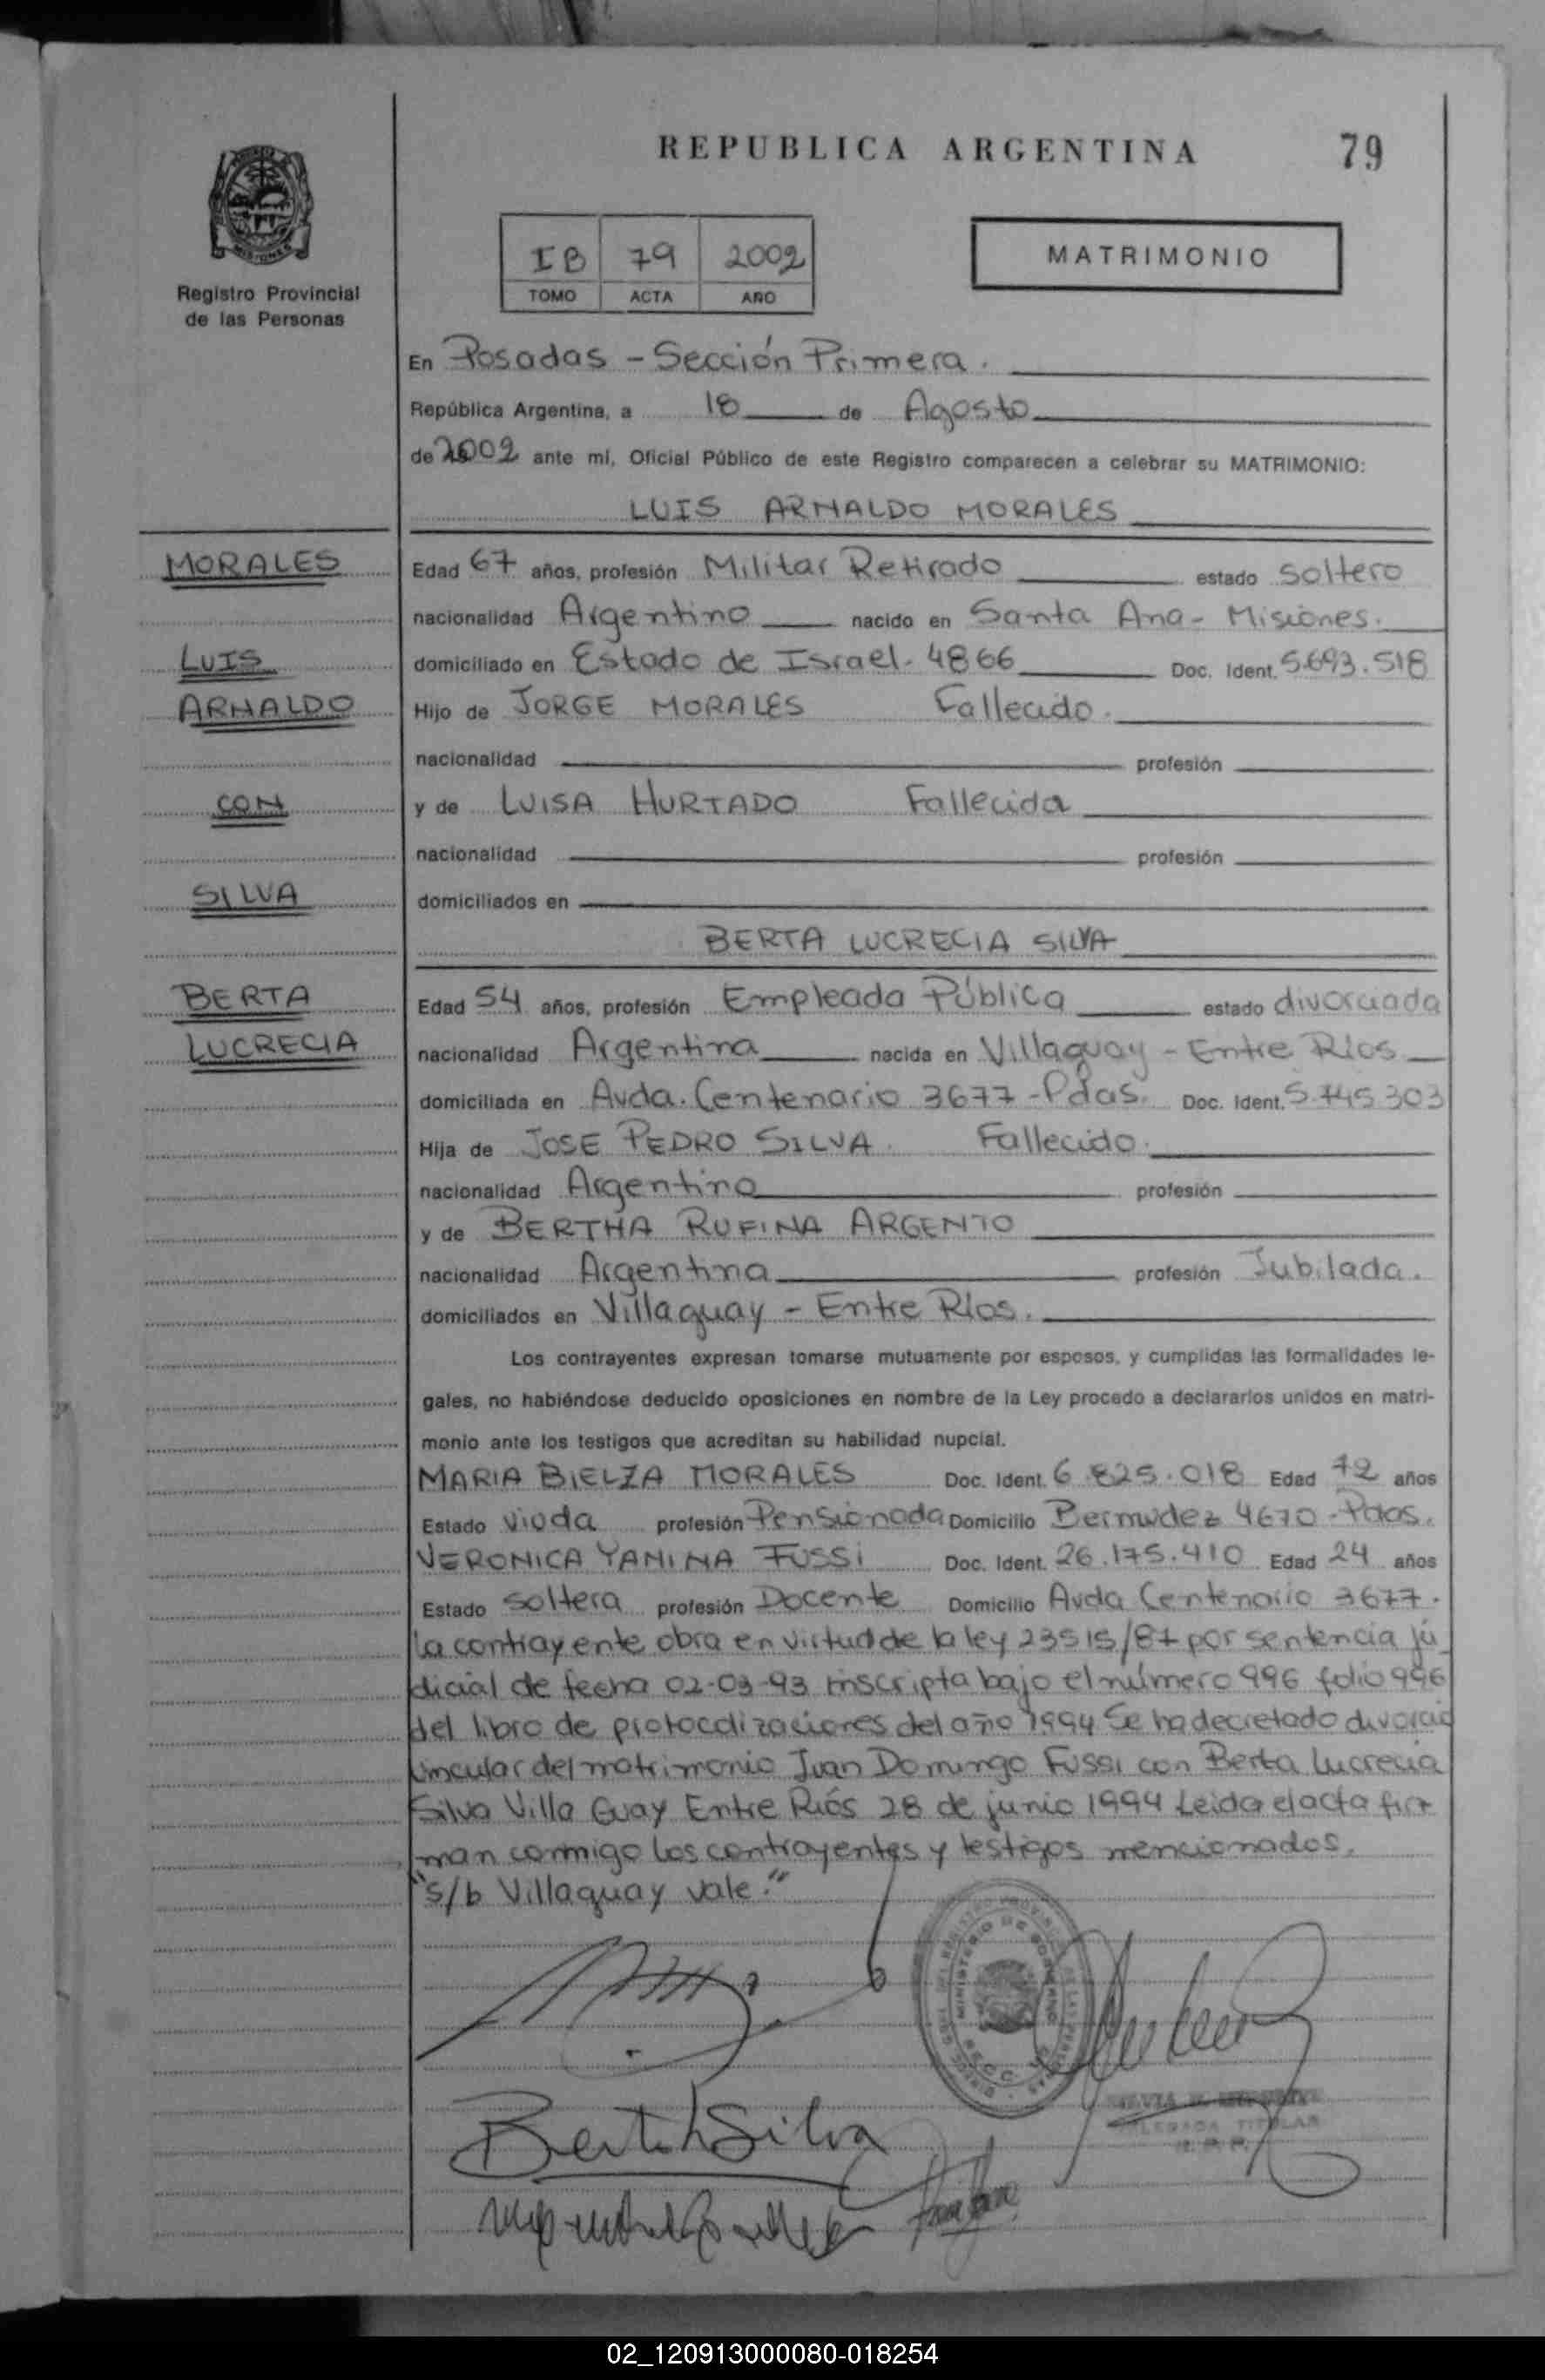 REPUBLICA ARGENTINA 79
Registro Provincial
de las Personas
IB 79 2002
TOMO ACTA AÑO
MATRIMONIO
En Posadas - Sección Primera.
República Argentina, a 18 de Agosto
de 2002 ante mí, Oficial Público de este Registro comparecen a celebrar su MATRIMONIO:
LUIS ARNALDO MORALES
MORALES
Edad 67 años, profesión Militar Retirado estado soltero
nacionalidad Argentino nacido en Santa Ana - Misiones.
LUIS
domiciliado en Estado de Israel - 4866 Doc. Ident. 5.693.518
ARNALDO
Hijo de JORGE MORALES Fallecido.
nacionalidad profesión
CON
y de LUISA HURTADO Fallecida
nacionalidad profesión
SILVA
domiciliados en
BERTA LUCRECIA SILVA
BERTA
Edad 54 años, profesión Empleada Pública estado divorciada
LUCRECIA
nacionalidad Argentina nacida en Villaguay - Entre Ríos
domiciliada en Avda. Centenario 3677 - Pdas. Doc. Ident. 5.745.303
Hija de JOSE PEDRO SILVA. Fallecido.
nacionalidad Argentino profesión
y de BERTHA RUFINA ARGENTO
nacionalidad Argentina profesión Jubilada.
domiciliados en Villaguay - Entre Ríos.
Los contrayentes expresan tomarse mutuamente por esposos, y cumplidas las formalidades le-
gales, no habiéndose deducido oposiciones en nombre de la Ley procedo a declararlos unidos en matri-
monio ante los testigos que acreditan su habilidad nupcial.
MARIA BIELZA MORALES Doc. Ident. 6.825.018 Edad 72 años
Estado Viuda profesión Pensionada Domicilio Bermudez 4670 - Pdas.
VERONICA YANINA FUSSI Doc. Ident. 26.175.410 Edad 24 años
Estado soltera profesión Docente Domicilio Avda Centenario 3677.
la contrayente obra en virtud de la ley 23515/87 por sentencia ju
dicial de fecha 02-03-93 inscripta bajo el número 996 folio 996
del libro de protocolizaciones del año 1994 Se ha decretado divorcio
vincular del matrimonio Juan Domingo Fussi con Berta Lucrecia
Silva Villa Guay Entre Ríos 28 de junio 1994 Leida el acta fir
man conmigo los contrayentes y testigos mencionados.
"s/b Villaguay vale."
MINISTERIO DE GOBIERNO
Berta L Silva
TITULAR
02_120913000080-018254